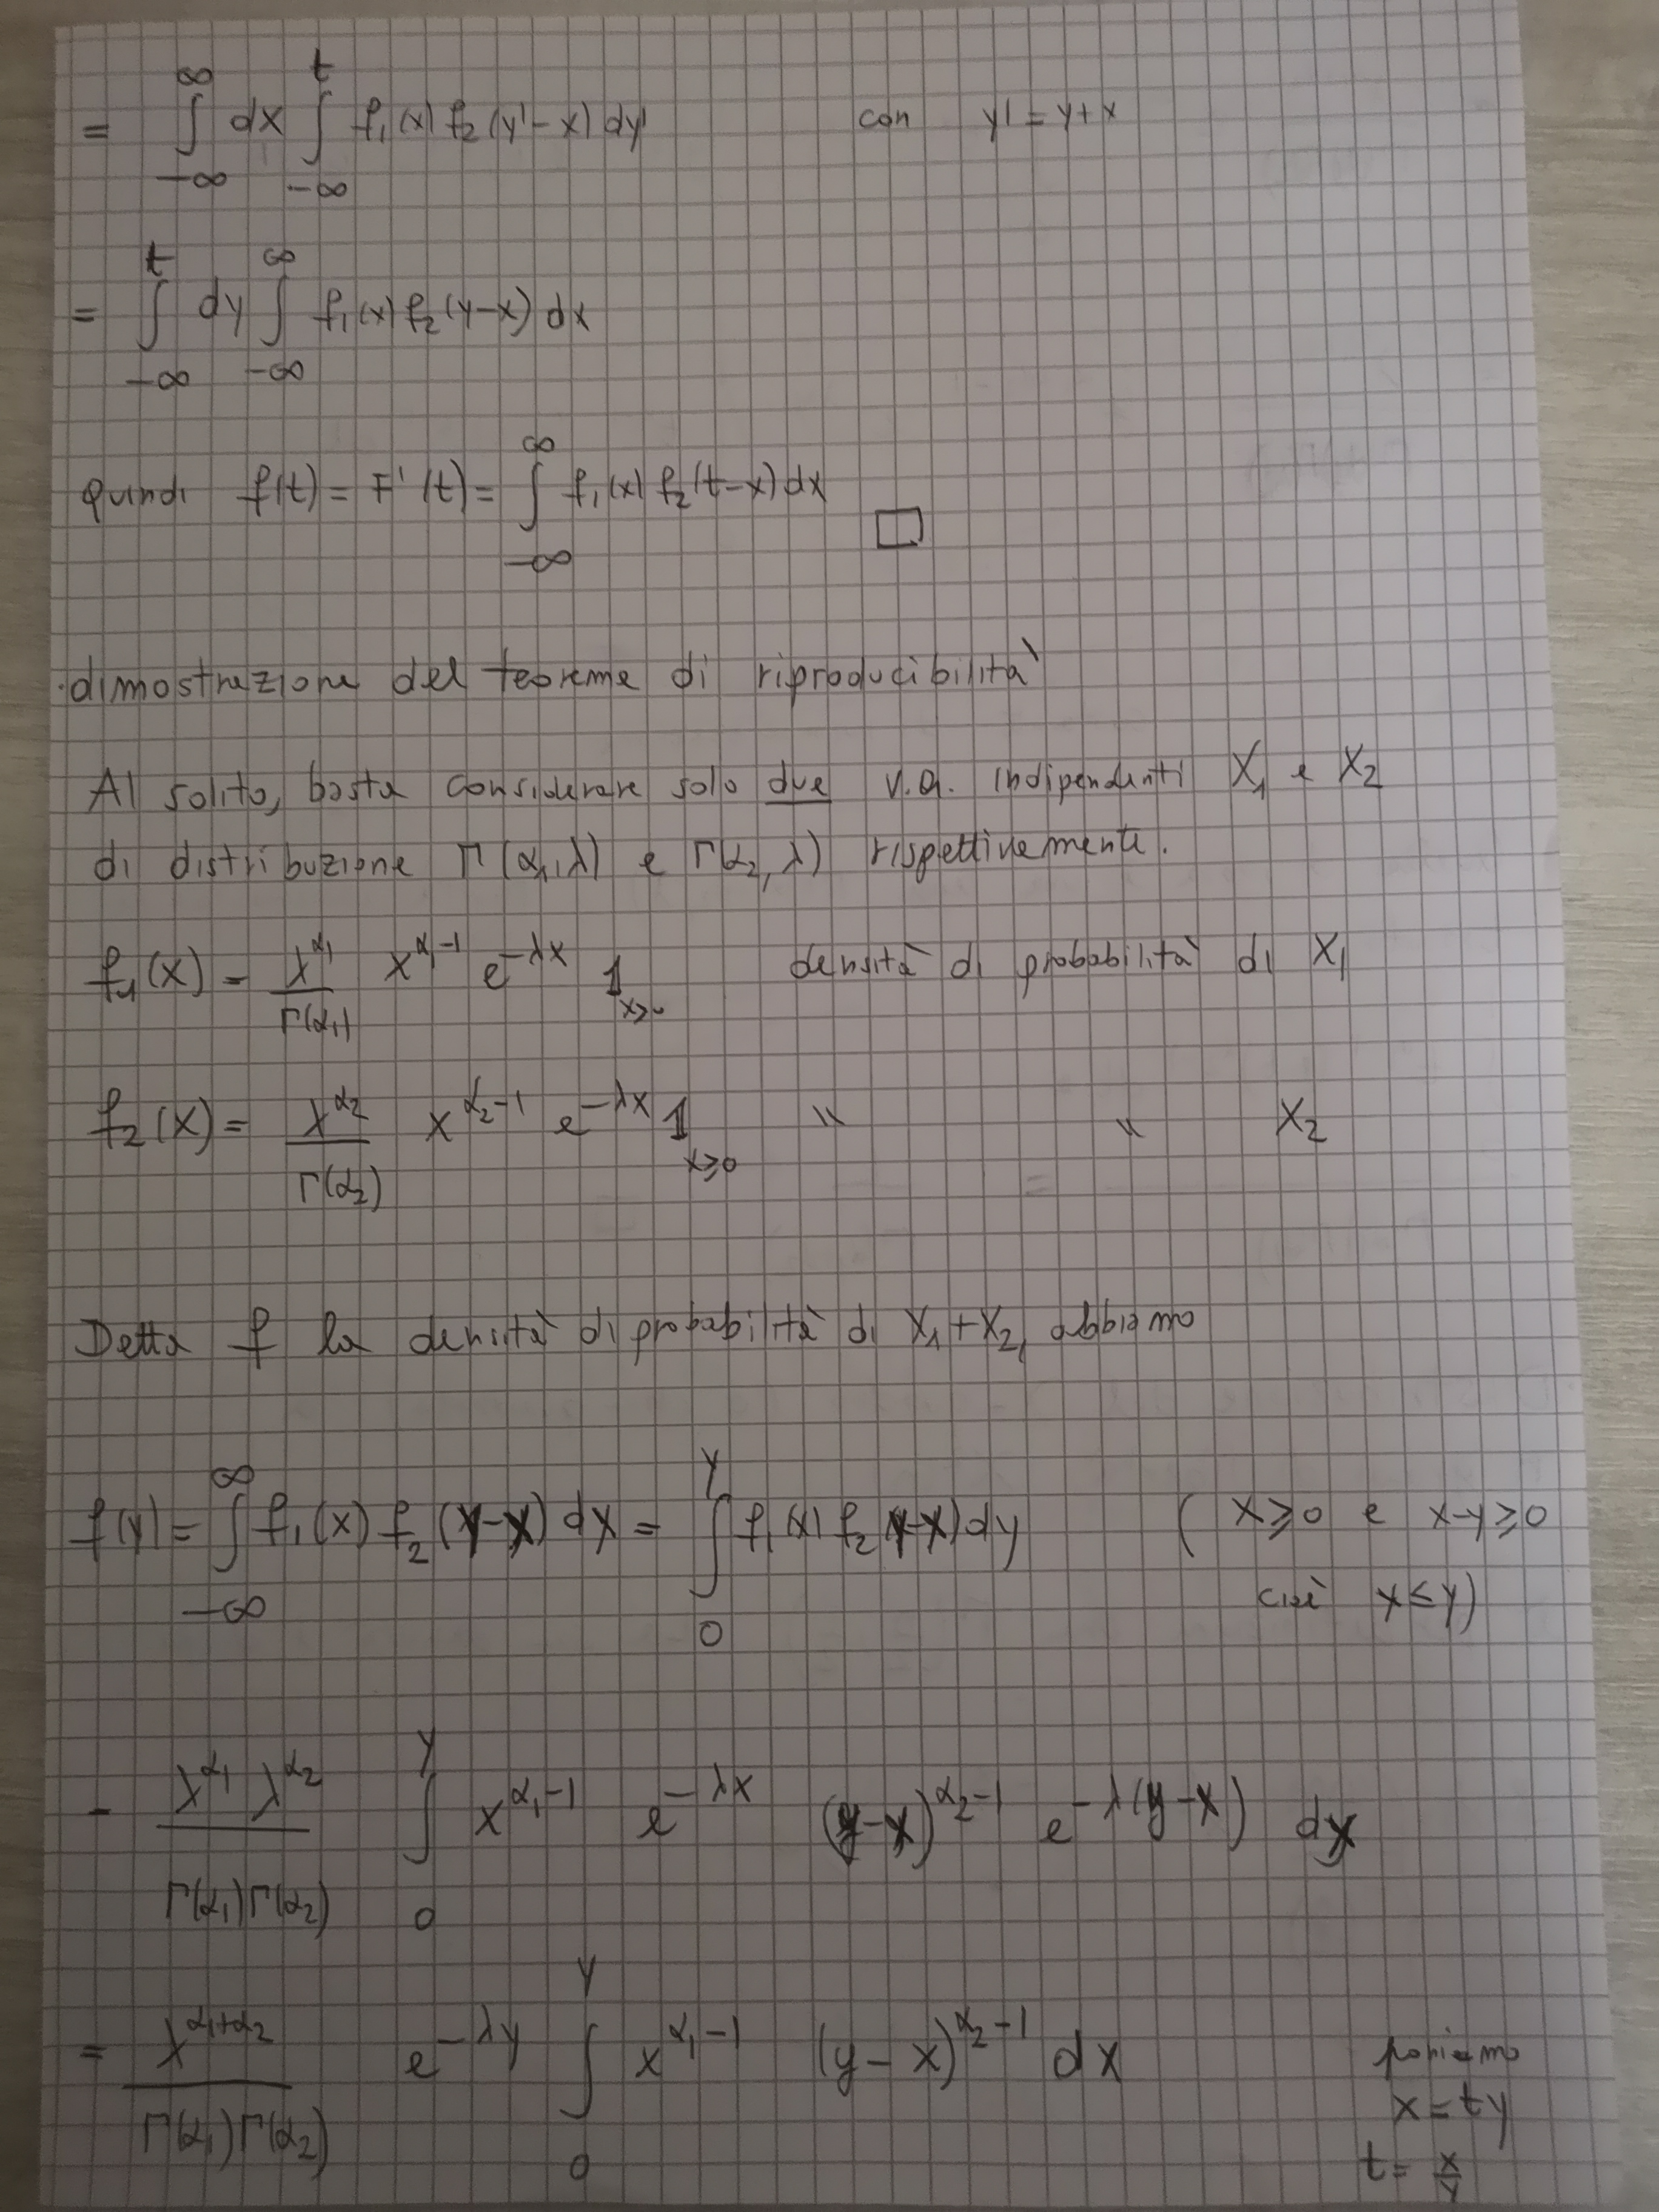 = ∫_{-∞}^{∞} dx ∫_{-∞}^{t} f₁(x) f₂(y'-x) dy' con y' = y+x
= ∫_{-∞}^{t} dy ∫_{-∞}^{∞} f₁(x) f₂(y-x) dx
Quindi f(t) = F'(t) = ∫_{-∞}^{∞} f₁(x) f₂(t-x) dx □
·dimostrazione del teorema di riproducibilità
Al solito, basta considerare solo due v.a. indipendenti X₁ e X₂
di distribuzione Γ(α₁,λ) e Γ(α₂,λ) rispettivamente.
f₁(x) = λ^{α₁}/Γ(α₁) x^{α₁-1} e^{-λx} 1_{x≥0} densità di probabilità di X₁
f₂(x) = λ^{α₂}/Γ(α₂) x^{α₂-1} e^{-λx} 1_{x≥0} " " X₂
Detta f la densità di probabilità di X₁+X₂, abbiamo
f(y) = ∫_{-∞}^{∞} f₁(x) f₂(y-x) dx = ∫_{0}^{y} f₁(x) f₂(y-x) dy ( x≥0 e x-y≥0
cioè x≤y)
= λ^{α₁} λ^{α₂}/Γ(α₁)Γ(α₂) ∫_{0}^{y} x^{α₁-1} e^{-λx} (y-x)^{α₂-1} e^{-λ(y-x)} dx
= λ^{α₁+α₂}/Γ(α₁)Γ(α₂) e^{-λy} ∫_{0}^{y} x^{α₁-1} (y-x)^{α₂-1} dx poniamo
x = ty
t = x/y